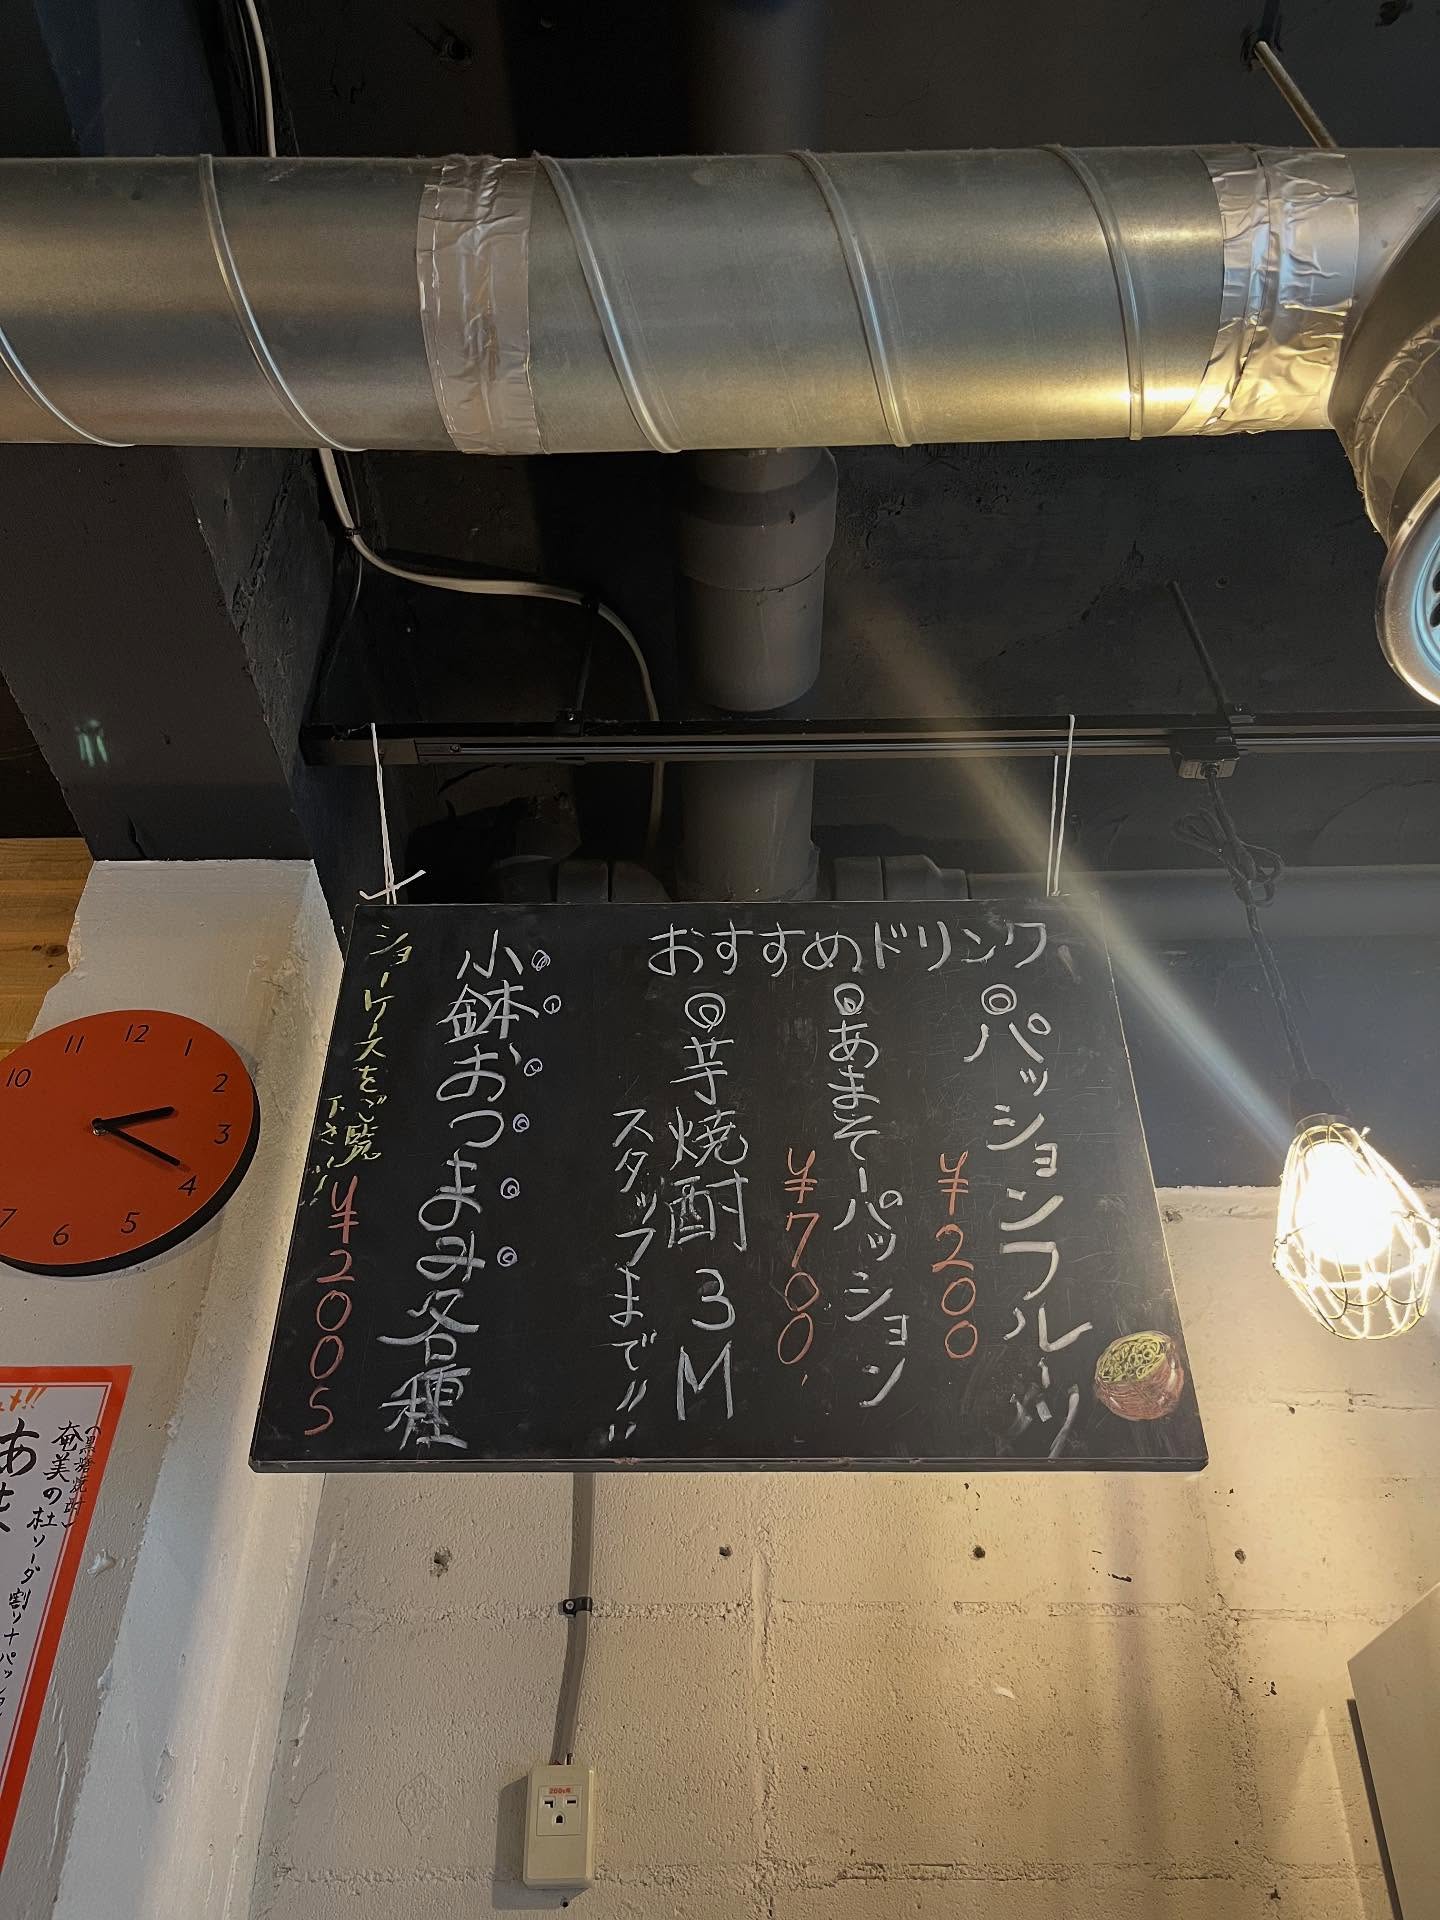 おすすめドリンク
◎パッションフルーツ
¥200
◎あまそーパッション
¥700
◎芋焼酎 3M
スタッフまで!!
小鉢おつまみ各種
ショーケースをご覧
下さい!!
¥200S
12
1
2
3
4
5
6
7
10
11
200V用
(黒糖焼酎)
奄美の杜ソーダ割り+パッション